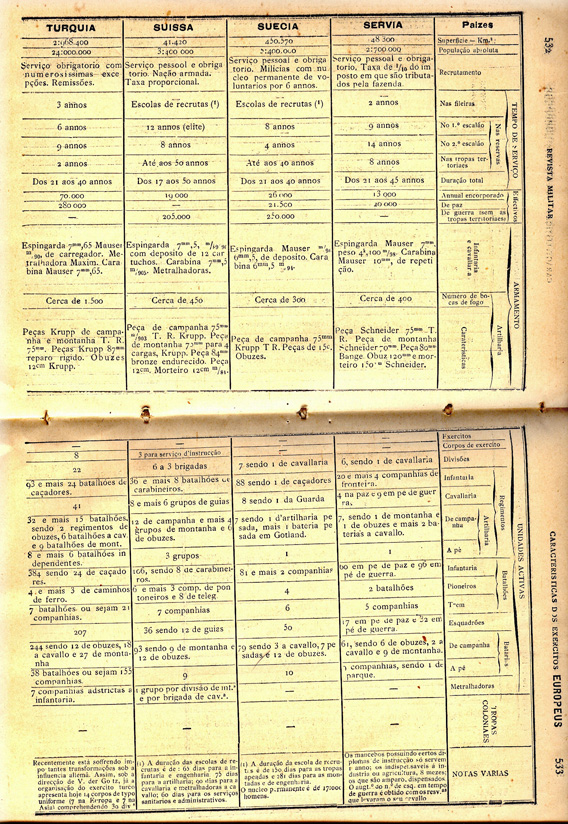 532
REVISTA MILITAR
TURQUIA
SUISSA
SUECIA
SERVIA
Paizes
41.420
48 300
Superficie — Km.²
24:000.000
3:400 000
5:400.000
2:700.000
População absoluta
Serviço obrigatorio com
numerosissimas exce
pções. Remissões.
Serviço pessoal e obriga
torio. Nação armada.
Taxa proporcional.
Serviço pessoal e obriga
torio. Milicias com nu
cleo permanente de vo-
luntarios por 6 annos.
Serviço pessoal e obriga-
torio. Taxa de do im
posto em que são tributa-
dos pela fazenda.
Recrutamento
3 annos
Escolas de recrutas (¹)
Escolas de recrutas (¹)
2 annos
Nas fileiras
6 annos
12 annos (elite)
8 annos
9 annos
No 1.º escalão
9 annos
8 annos
4 annos
14 annos
No 2.º escalão
2 annos
Até aos 50 annos
Até aos 40 annos
8 annos
Nas tropas ter-
ritoriaes
Nas reservas
TEMPO DE SERVIÇO
Dos 21 aos 40 annos
Dos 17 aos 50 annos
Dos 21 aos 40 annos
Dos 21 aos 45 annos
Duração total
70.000
19 000
26 000
13 000
Annual encorporado
280 000
—
21.500
20 000
De paz
—
205.000
250.000
—
De guerra (sem as
tropas territoriaes)
Effectivos
Espingarda 7mm,65 Mauser
m/90, de carregador. Me-
tralhadora Maxim. Cara
bina Mauser 7mm,65.
Espingarda 7mm,5,
com deposito de 12 car
tuchos. Carabina 7mm,5
m/905. Metralhadoras.
Espingarda Mauser
6mm,5, de deposito. Cara
bina 6mm,5 m/94.
Espingarda Mauser 7mm,
peso
Mauser 10mm, de repeti
ção.
Infantaria
e cavallaria
Cerca de 1.500
Cerca de 450
Cerca de 300
Cerca de 400
Numero de bo-
cas de fogo
Peças Krupp de campa-
nha e montanha T. R.
75mm. Peças Krupp 87mm
reparo rigido. Obuzes
12cm Krupp.
Peça de campanha 75mm
m/903 T. R. Krupp. Peça
de montanha para 4
cargas, Krupp. Peça 84mm
bronze endurecido. Peça
12cm. Morteiro 12cm m/84.
Peça de campanha 75mm
Krupp T R. Peças de 15c.
Obuzes.
Peça Schneider 75mm T.
R. Peça de montanha
Schneider 70mm. Peça 80mm
Bange. Obuz 120mm e mor-
teiro 150mm Schneider.
Caraterísticas
Artilharia
ARMAMENTO
CARACTERISTICAS DOS EXERCITOS EUROPEUS
533
—
—
—
—
Exercitos
—
—
—
—
Corpos de exercito
8
3 para serviço d'instrucção
—
—
Divisões
22
6 a 3 brigadas
7 sendo 1 de cavallaria
6, sendo 1 de cavallaria
93 e mais 24 batalhões de
caçadores.
36 e mais 8 batalhões de
carabineiros.
88 sendo 1 de caçadores
20 e mais 4 companhias de
fronteira.
Infantaria
41
8 e mais 6 grupos de guias
8 sendo 1 da Guarda
4 na paz e 9 em pe de guer
ra.
Cavallaria
32 e mais 15 batalhões,
sendo 2 regimentos de
obuzes, 6 batalhões a cav.
e 9 batalhões de mont.
12 de campanha e mais 4
grupos de montanha e 6
de obuzes.
7 sendo 1 d'artilharia pe
sada, mais 1 bateria pe
sada em Gotland.
7, sendo 1 de montanha e
1 de obuzes e mais 2 ba-
terias a cavallo.
De campa-
nha
8 e mais 6 batalhões in
dependentes.
3 grupos
1
1
A pé
Artilharia
Regimentos
384 sendo 24 de caçado
res.
106, sendo 8 de carabinei-
ros.
81 e mais 2 companhias
60 em pe de paz e 96 em
pé de guerra.
Infantaria
4 e mais 3 de caminhos
de ferro.
6 e mais 3 comp. de pon
toneiros e 8 de teleg.
4
2 batalhões
Pioneiros
7 batalhões ou sejam 21
companhias.
7 companhias
6
5 companhias
Trem
Batalhões
207
36 sendo 12 de guias
50
17 em pe de paz e 32 em
pé de guerra.
Esquadrões
244 sendo 12 de obuzes, 18
a cavallo e 27 de monta-
nha
93 sendo 9 de montanha e
12 de obuzes.
79 sendo 3 a cavallo, 7 pe
sadas e 12 de obuzes.
61, sendo 6 de obuzes, 2 a
cavallo e 9 de montanha.
De campanha
38 batalhões ou sejam 155
companhias.
9
10
3 companhias, sendo 1 de
parque.
A pé
Baterias
7 companhias adstrictas a
infantaria.
1 grupo por divisão de inf.ª
e por brigada de cav.ª.
—
—
Metralhadoras
UNIDADES ACTIVAS
—
—
—
—
TROPAS
COLONIAES
Recentemente está soffrendo im
portantes transformações sob a
influencia allemã. Assim, sob a
direcção de V. der Goltz, já a
organisação do exercito turco
apresenta hoje 14 corpos de typo
uniforme (7 na Europa e 7 na
Asia) comprehendendo
(1) A duração das escolas de re-
crutas é de: 65 dias para a in-
fantaria e engenharia 75 dias
para a artilharia; 90 dias para a
cavallaria e metralhadoras a ca
vallo; 60 dias para os serviços
sanitarios e administrativos.
(1) A duração da escola de recru-
tas é de 150 dias para as tropas
apeadas e 281 dias para as mon-
tadas e de engenharia.
O nucleo permanente é de 17000
homens.
Os mancebos possuindo certos di-
plomas de instrucção só servem
1 anno; os indispensaveis á in-
dustria ou agricultura, 8 mezes;
os que são amparo, dispensados.
O augt.º do n.º de esq. em tempo
de guerra é obtido com os resv.as
que levaram o seu cavallo
NOTAS VARIAS